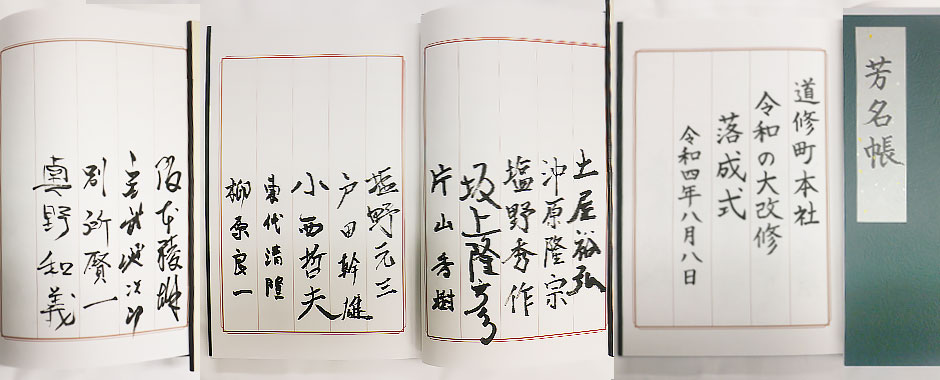 芳名帳
道修町本社
令和の大改修
落成式
令和四年八月八日
土屋裕弘
沖原隆宗
塩野秀作
坂上隆彦
片山秀樹
塩野元三
戸田幹雄
小西哲夫
東代清隆
柳原良一
別所賢一
真野和義